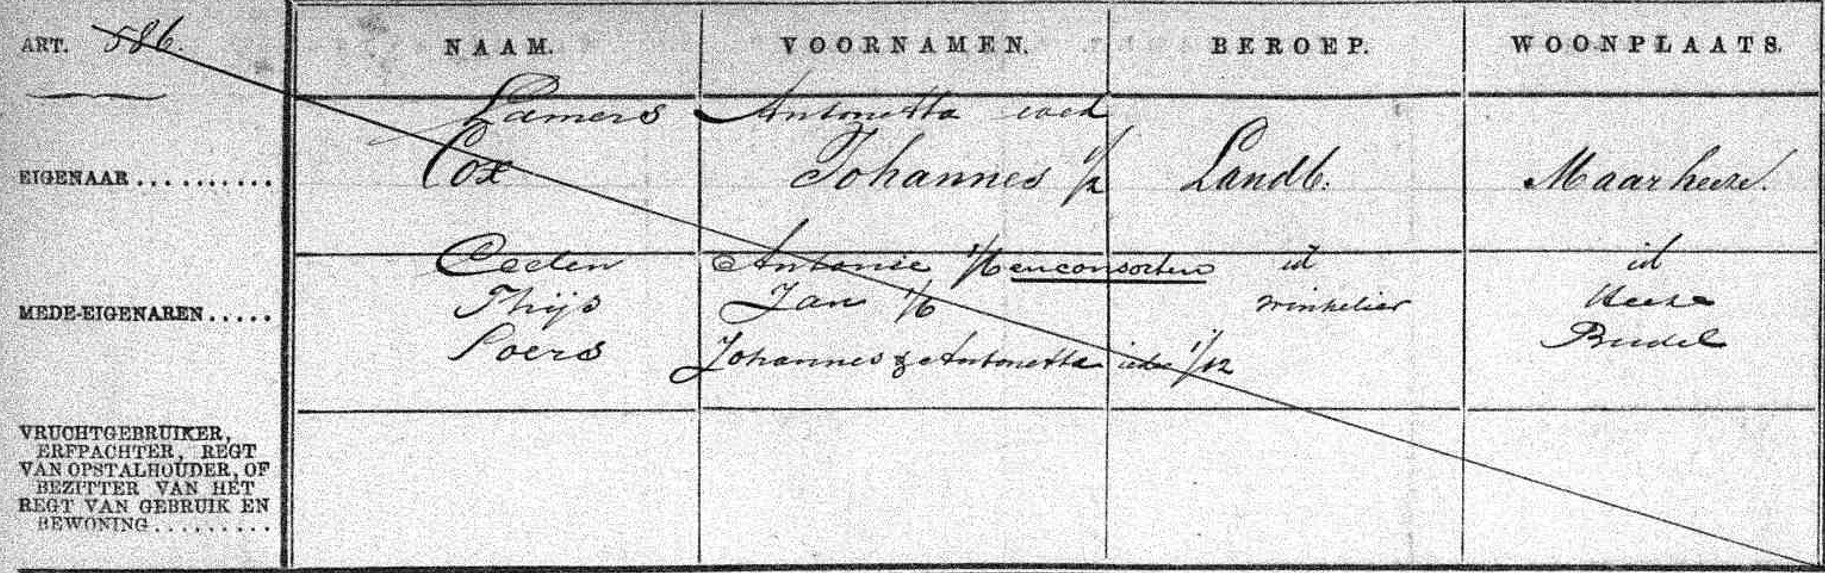 ART. 586. NAAM. VOORNAMEN. BEROEP. WOONPLAATS.
Lamers Antonetta wed
EIGENAAR........... Cox Johannes 1/2 Landb. Maarheeze.
Ceelen Antonie 1/6 en consorten id id
MEDE-EIGENAREN..... Thijs Jan 1/6 winkelier Heeze
Soers Johannes & Antonetta ieder 1/12 Budel
VRUCHTGEBRUIKER,
ERFPACHTER, REGT
VAN OPSTALHOUDER, OF
BEZITTER VAN HET
REGT VAN GEBRUIK EN
BEWONING.........